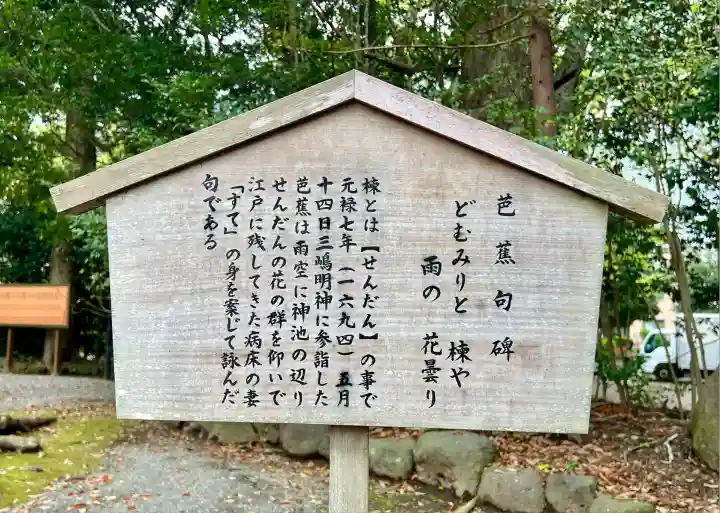 芭蕉句碑
どむみりと 楝や
雨の 花曇り
楝とは【せんだん】の事で
元禄七年(一六九四)五月
十四日三嶋明神に参詣した
芭蕉は雨空に神池の辺り
せんだんの花の群を仰いで
江戸に残してきた病床の妻
「すて」の身を案じて詠んだ
句である